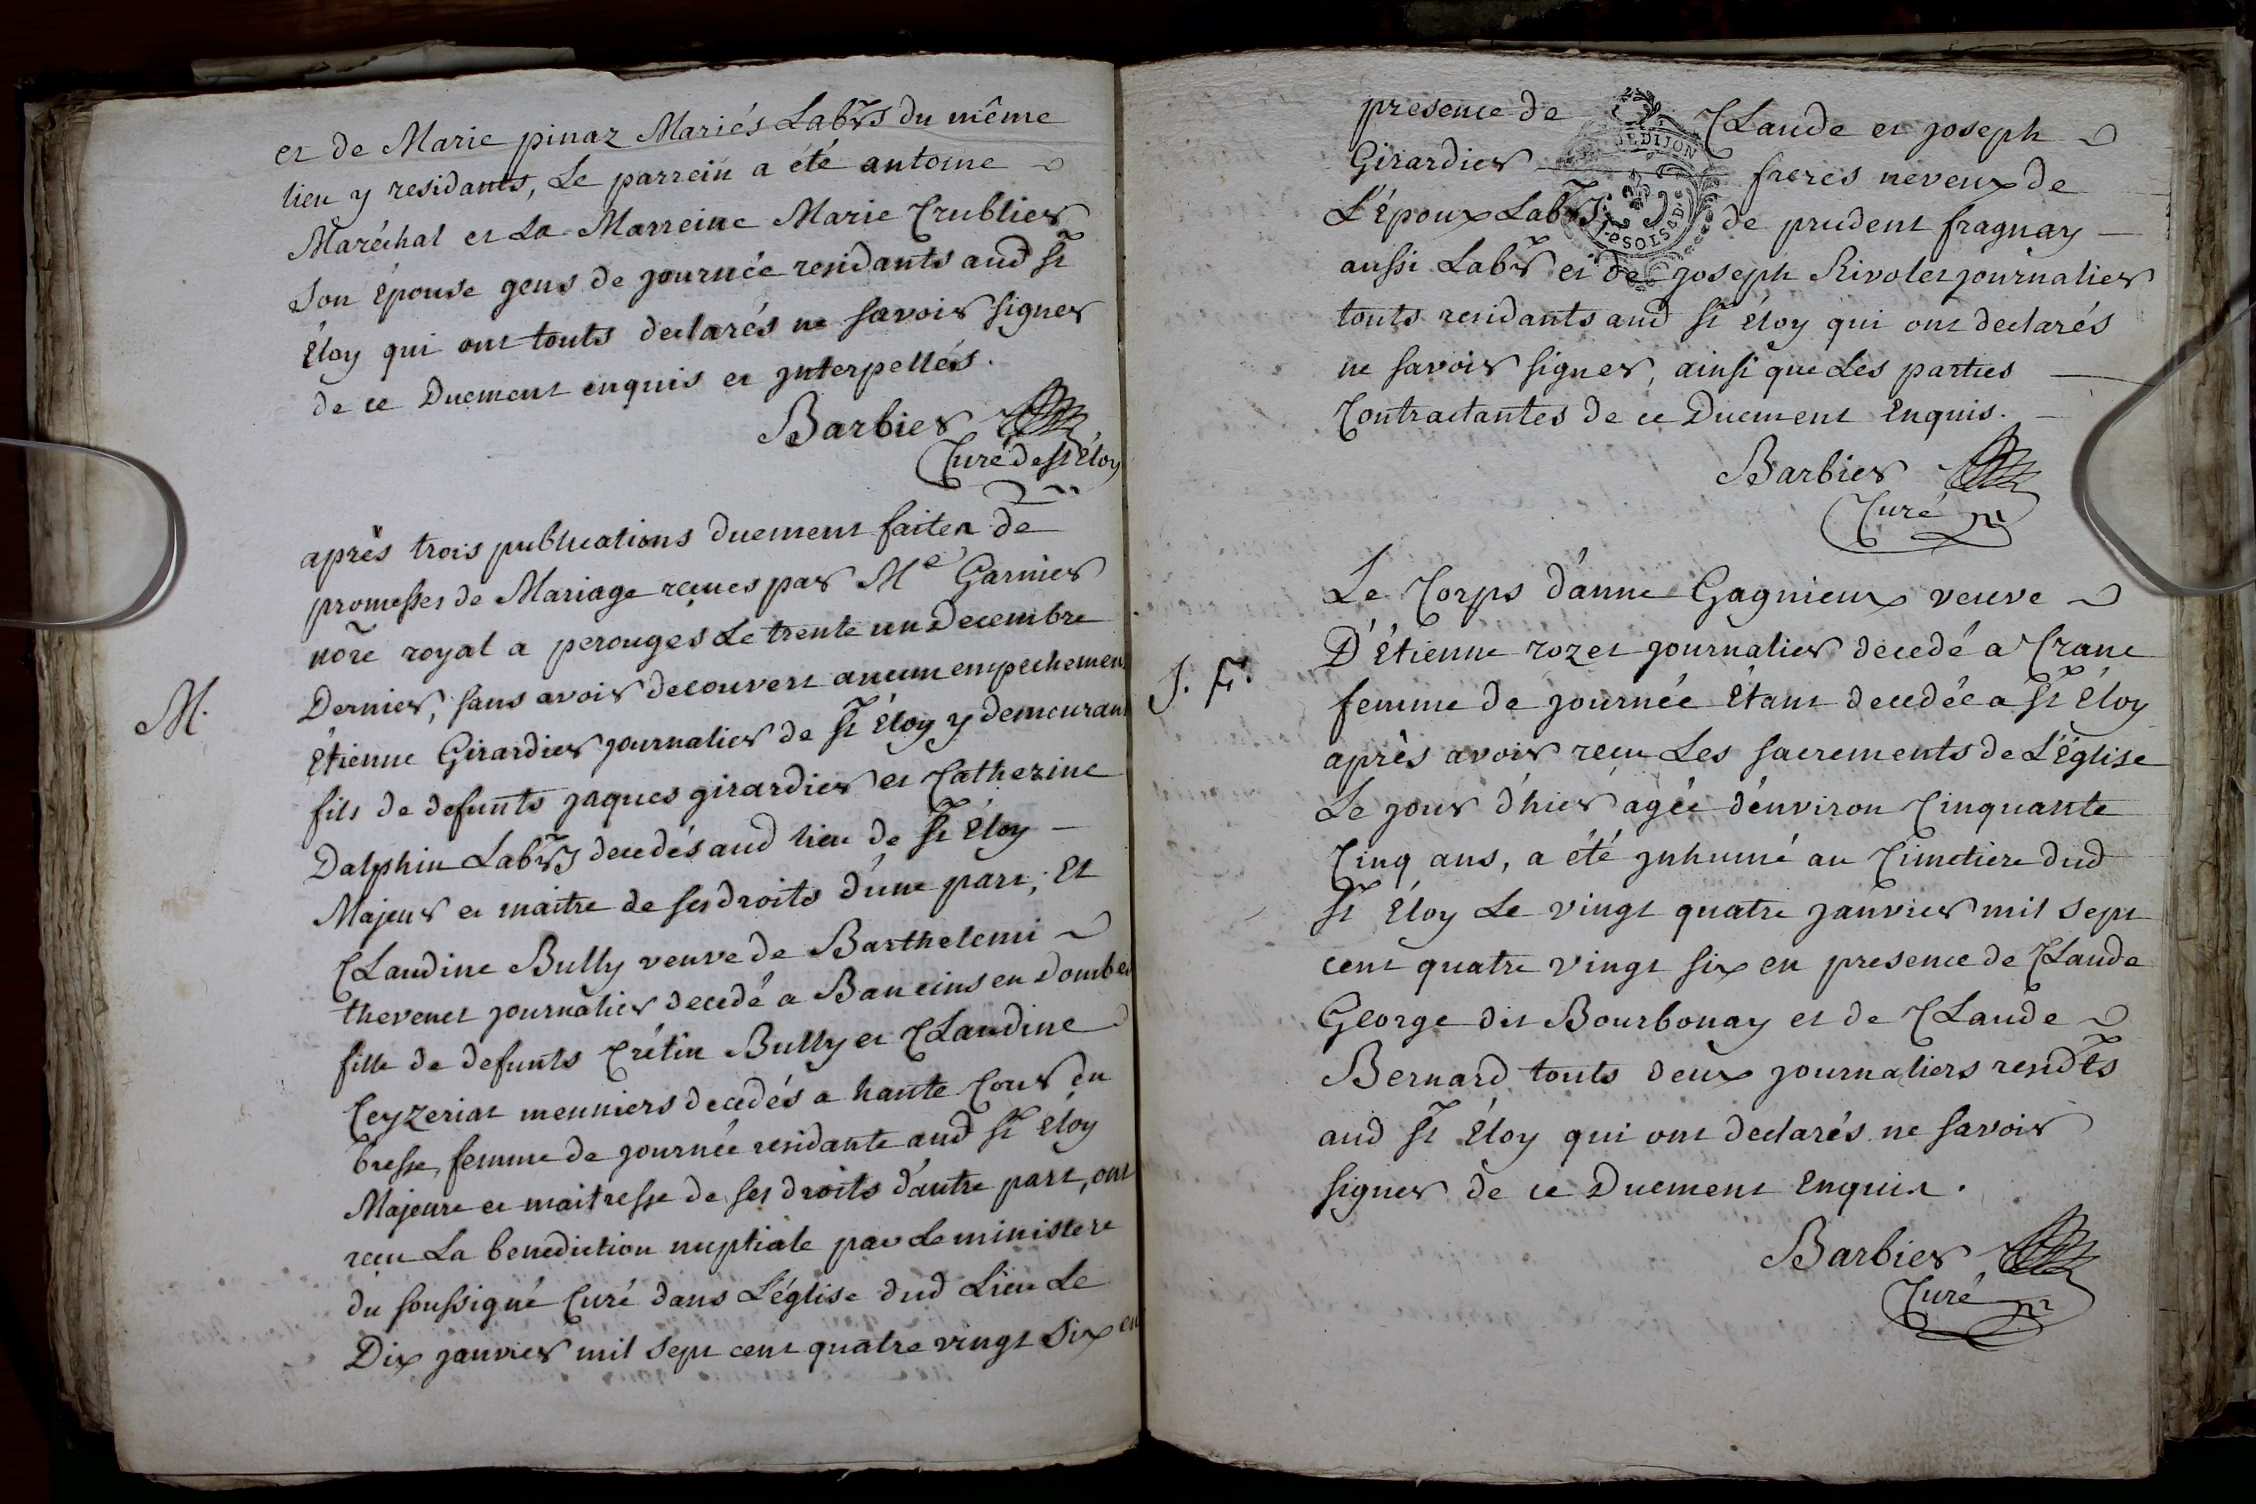 et de Marie pinaz Mariés Labrs du même
lieu y residants, Le parrein a été antoine
Maréchal et La Marreine Marie Crublier
Son Épouse gens de journée residants aud St
Éloy qui ont touts declarés ne savoir signer
de ce Duement enquis et jnterpellés.
Barbier
Curé de St Éloy
M.
après trois publications duement faites de
promesses de Mariage reçues par Me Garnier
nõre royal a perouges Le trente un Decembre
Dernier, sans avoir decouvert aucun empechement
Étienne Girardier journalier de St Éloy y demeurant
fils de defunts jaques girardier et Catherine
Dalphin Labrs decedés aud lieu de St Éloy
Majeur et maitre de ses droits d'une part; Et
CLaudine Bully veuve de Barthelemi
thevenet journalier decedé a Baneins en Dombes
fille de defunts Crétin Bully et CLaudine
Ceyzeriat meuniers decedés a haute Cour en
bresse, femme de journée residante aud St Éloy
Majeure et maitresse de ses droits d'autre part, ont
reçu La benediction nuptiale par Le ministere
du soussigné Curé dans L'église dud Lieu Le
Dix janvier mil sept cent quatre vingt Six en
presence de CLaude et joseph
Girardier freres neveux de
L'Époux Labrs, de prudent fragnay
aussi Labr et de joseph Rivolet journalier
touts residants aud St Éloy qui ont declarés
ne savoir signer, ainsi que Les parties
Contractantes de ce Duement Enquis.
Barbier
Curé
J. F.
Le Corps d'anne Gagnieux veuve
D'Étienne rozet journalier decedé a Crane
femme de journée Étant decedée a St Éloy
après avoir reçu Les sacrements de L'Église
Le jour d'hier agée d'environ Cinquante
Cinq ans, a été jnhumé au Cimetiere dud
St Éloy Le vingt quatre janvier mil sept
cent quatre vingt six en presence de CLaude
George dit Bourbonay et de CLaude
Bernard touts deux journaliers residts
aud St Éloy qui ont declarés ne savoir
signer de ce Duement Enquis.
Barbier
Curé